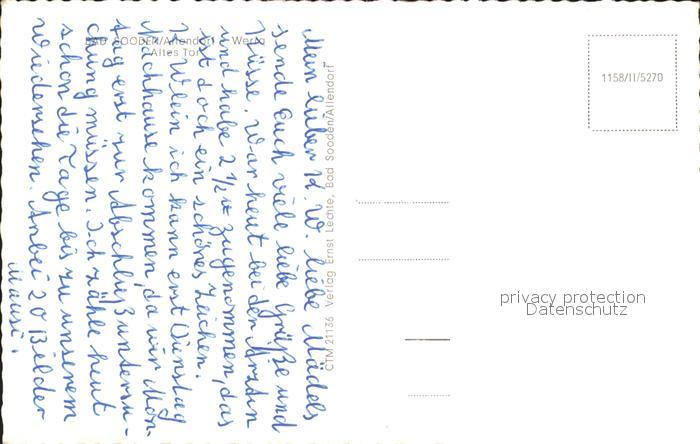 BAD SOODEN/Allendorf - Werra
Altes Tor
Mein lieber K. W. liebe Mädels
sende Euch viele liebe Grüße und
Küsse. War heut bei der Ärztin
und habe 2 1/2 zugenommen, das
ist doch ein schönes Zeichen.
K. Wlein ich kann erst Dienstag
Nachhause kommen, da wir Mon-
tag erst zur Abschlußuntersu-
chung müssen. Ich zähle heut
schon die Tage bis zu unserem
Wiedersehen. Anbei 20 Bilder
Mausi.
CTM 21136 Verlag Ernst Lechte, Bad Sooden/Allendorf
1158/II/5270
privacy protection
Datenschutz